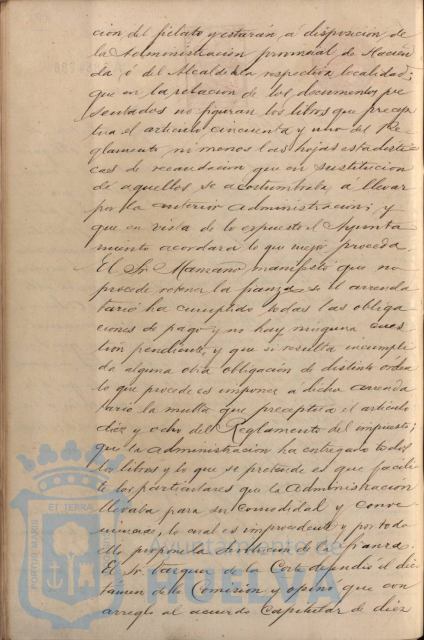 cion del fielato y estarán á disposicion de
la Administracion provincial de Hacien
da ó del Alcalde de la respectiva localidad;
que en la relacion de los documentos pre
sentados no figuran los libros que precep
tua el articulo cincuenta y uno del Re
glamento ni menos las hojas estadisti
cas de recaudacion que en sustitucion
de aquellos se acostumbraba á llevar
por la anterior Administracion; y
que en vista de lo expuesto el Ayunta
miento acordara lo que mejor proceda.
El Sr. Manzano manifestó que no
procede retener la fianza si el arrenda
tario ha cumplido todas las obliga
ciones de pago y no hay ninguna cues
tion pendiente, y que si resulta incumpli
da alguna otra obligacion de distinto órden
lo que procede es imponer á dicho arrenda
tario la multa que preceptua el articulo
diez y ocho del Reglamento del impuesto;
que la Administracion ha entregado todos
los libros y lo que se pretende es que facili
te los particulares que la Administracion
llevaba para su comodidad y conve
niencia, lo cual es improcedente y por todo
ello propone la devolucion de la fianza.
El Sr. Vazquez de la Corte defendió el dic
támen de la Comision y opinó que con
arreglo al acuerdo Capitular de diez
PORTUS MARIS
ET TERRÆ
Ayuntamiento de
HUELVA